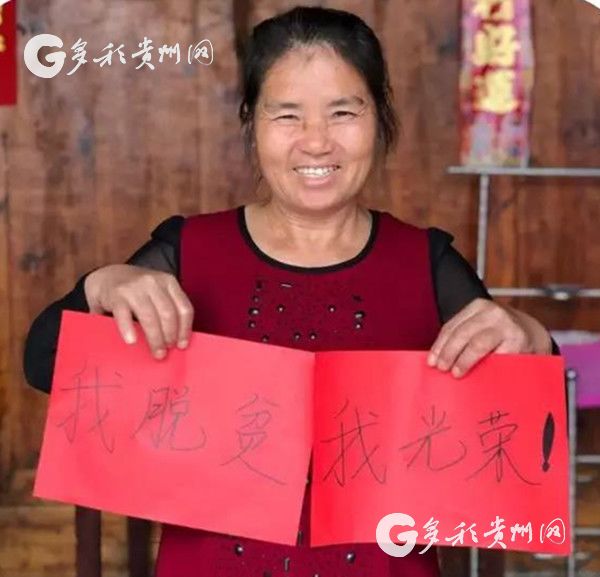 多彩贵州网
好運
我脱贫我光荣!
多彩贵州网